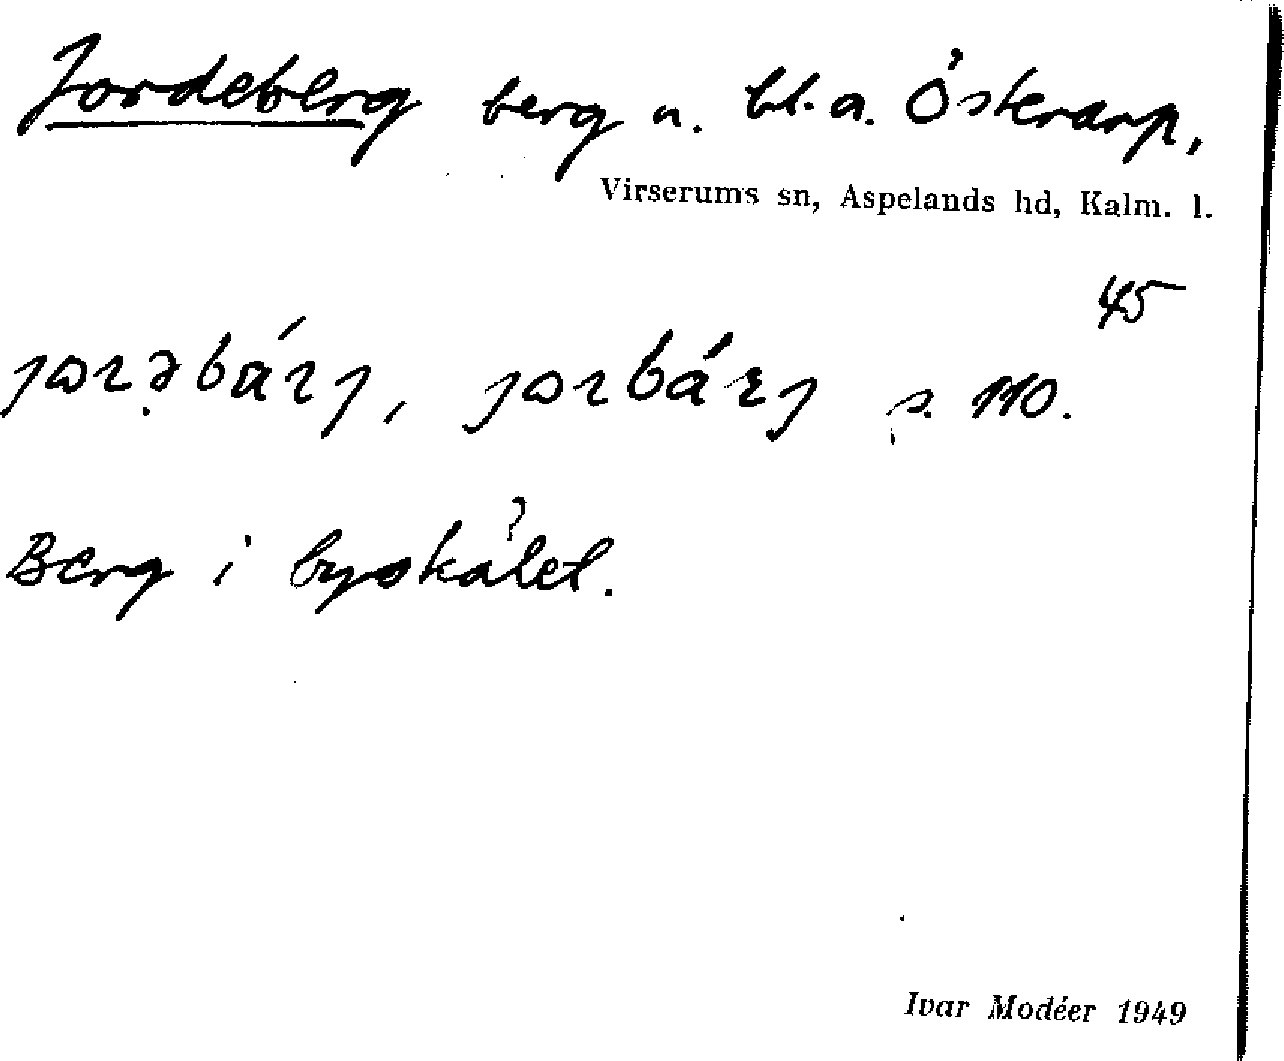 Jordeberg berg n. bl.a. Österarp,
Virserums sn, Aspelands hd, Kalm. l.
45
jorəbárj, jorbárj s. 110.
Berg i byskälet.
?
Ivar Modéer 1949